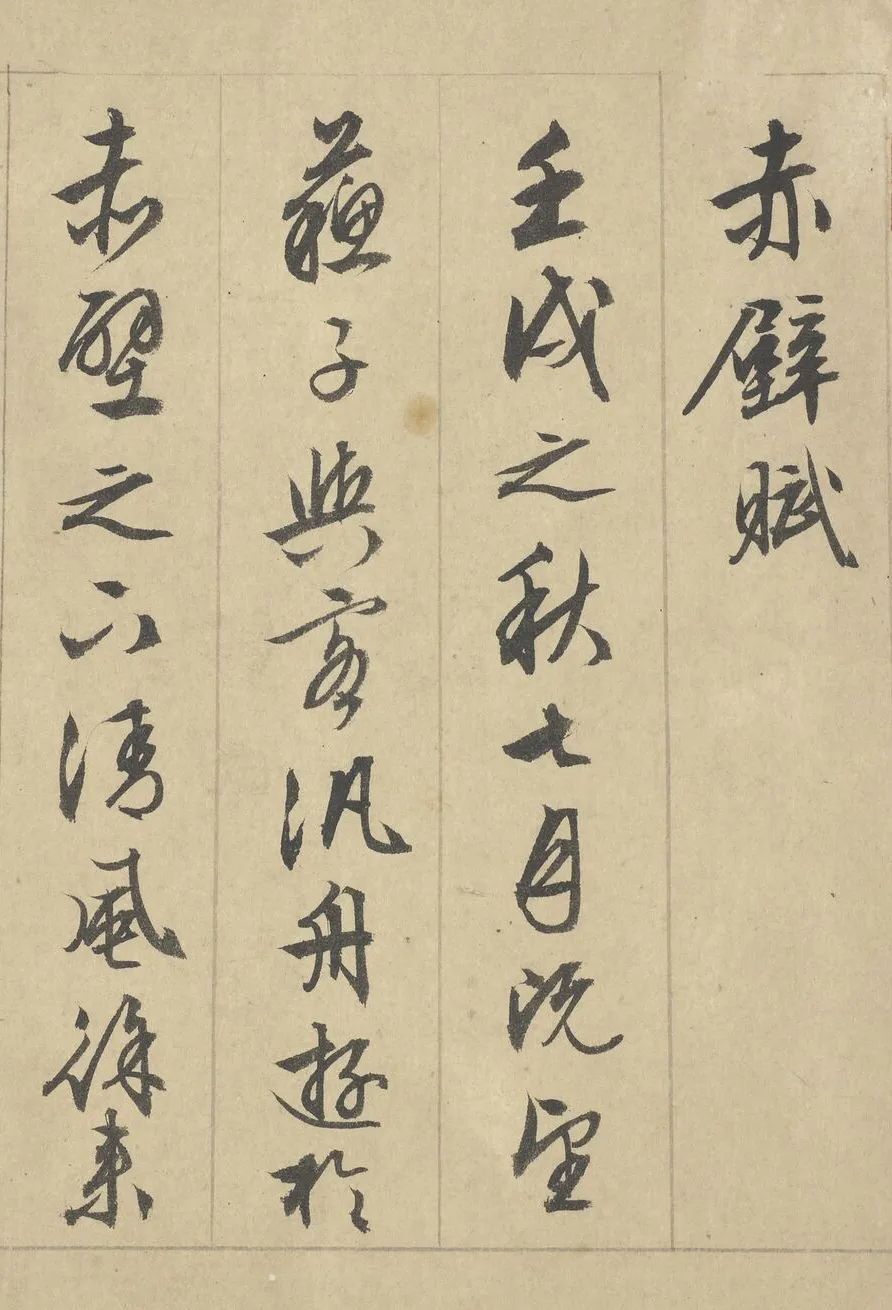 赤壁賦
壬戌之秋七月既望
蘇子與客汎舟遊於
赤壁之下清風徐来